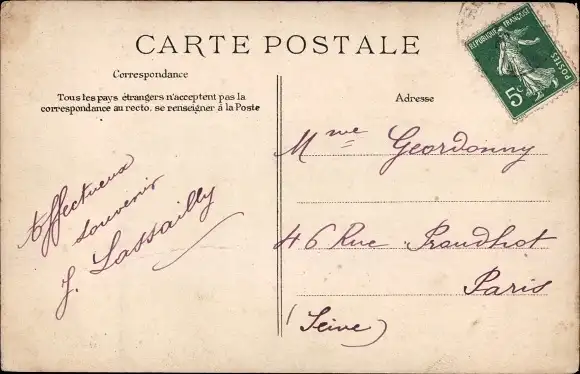 CARTE POSTALE
Correspondance
Tous les pays étrangers n'acceptent pas la
correspondance au recto, se renseigner à la Poste
Affectueux
souvenir
J. Lassailly
Adresse
RÉPUBLIQUE FRANÇAISE
POSTES
5c
Mme Geordonny
46 Rue Proudhot
Paris
(Seine)